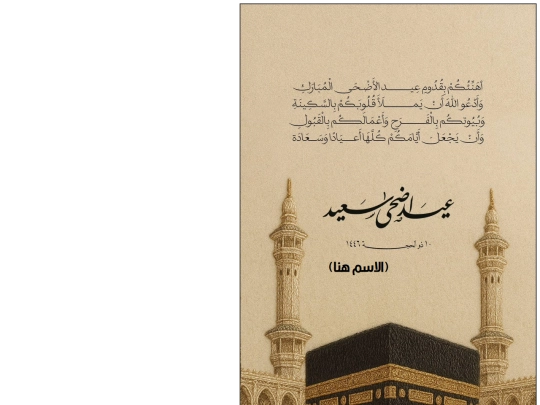 أهنئكم بقدوم عيد الأضحى المبارك
وأدعو الله أن يملأ قلوبكم بالسكينة
وبيوتكم بالفرح وأعمالكم بالقبول
وأن يجعل أيامكم كلها أعيادًا وسعادة
عيد اضحى سعيد
١٠ ذو الحجة ١٤٤٦
(الاسم هنا)